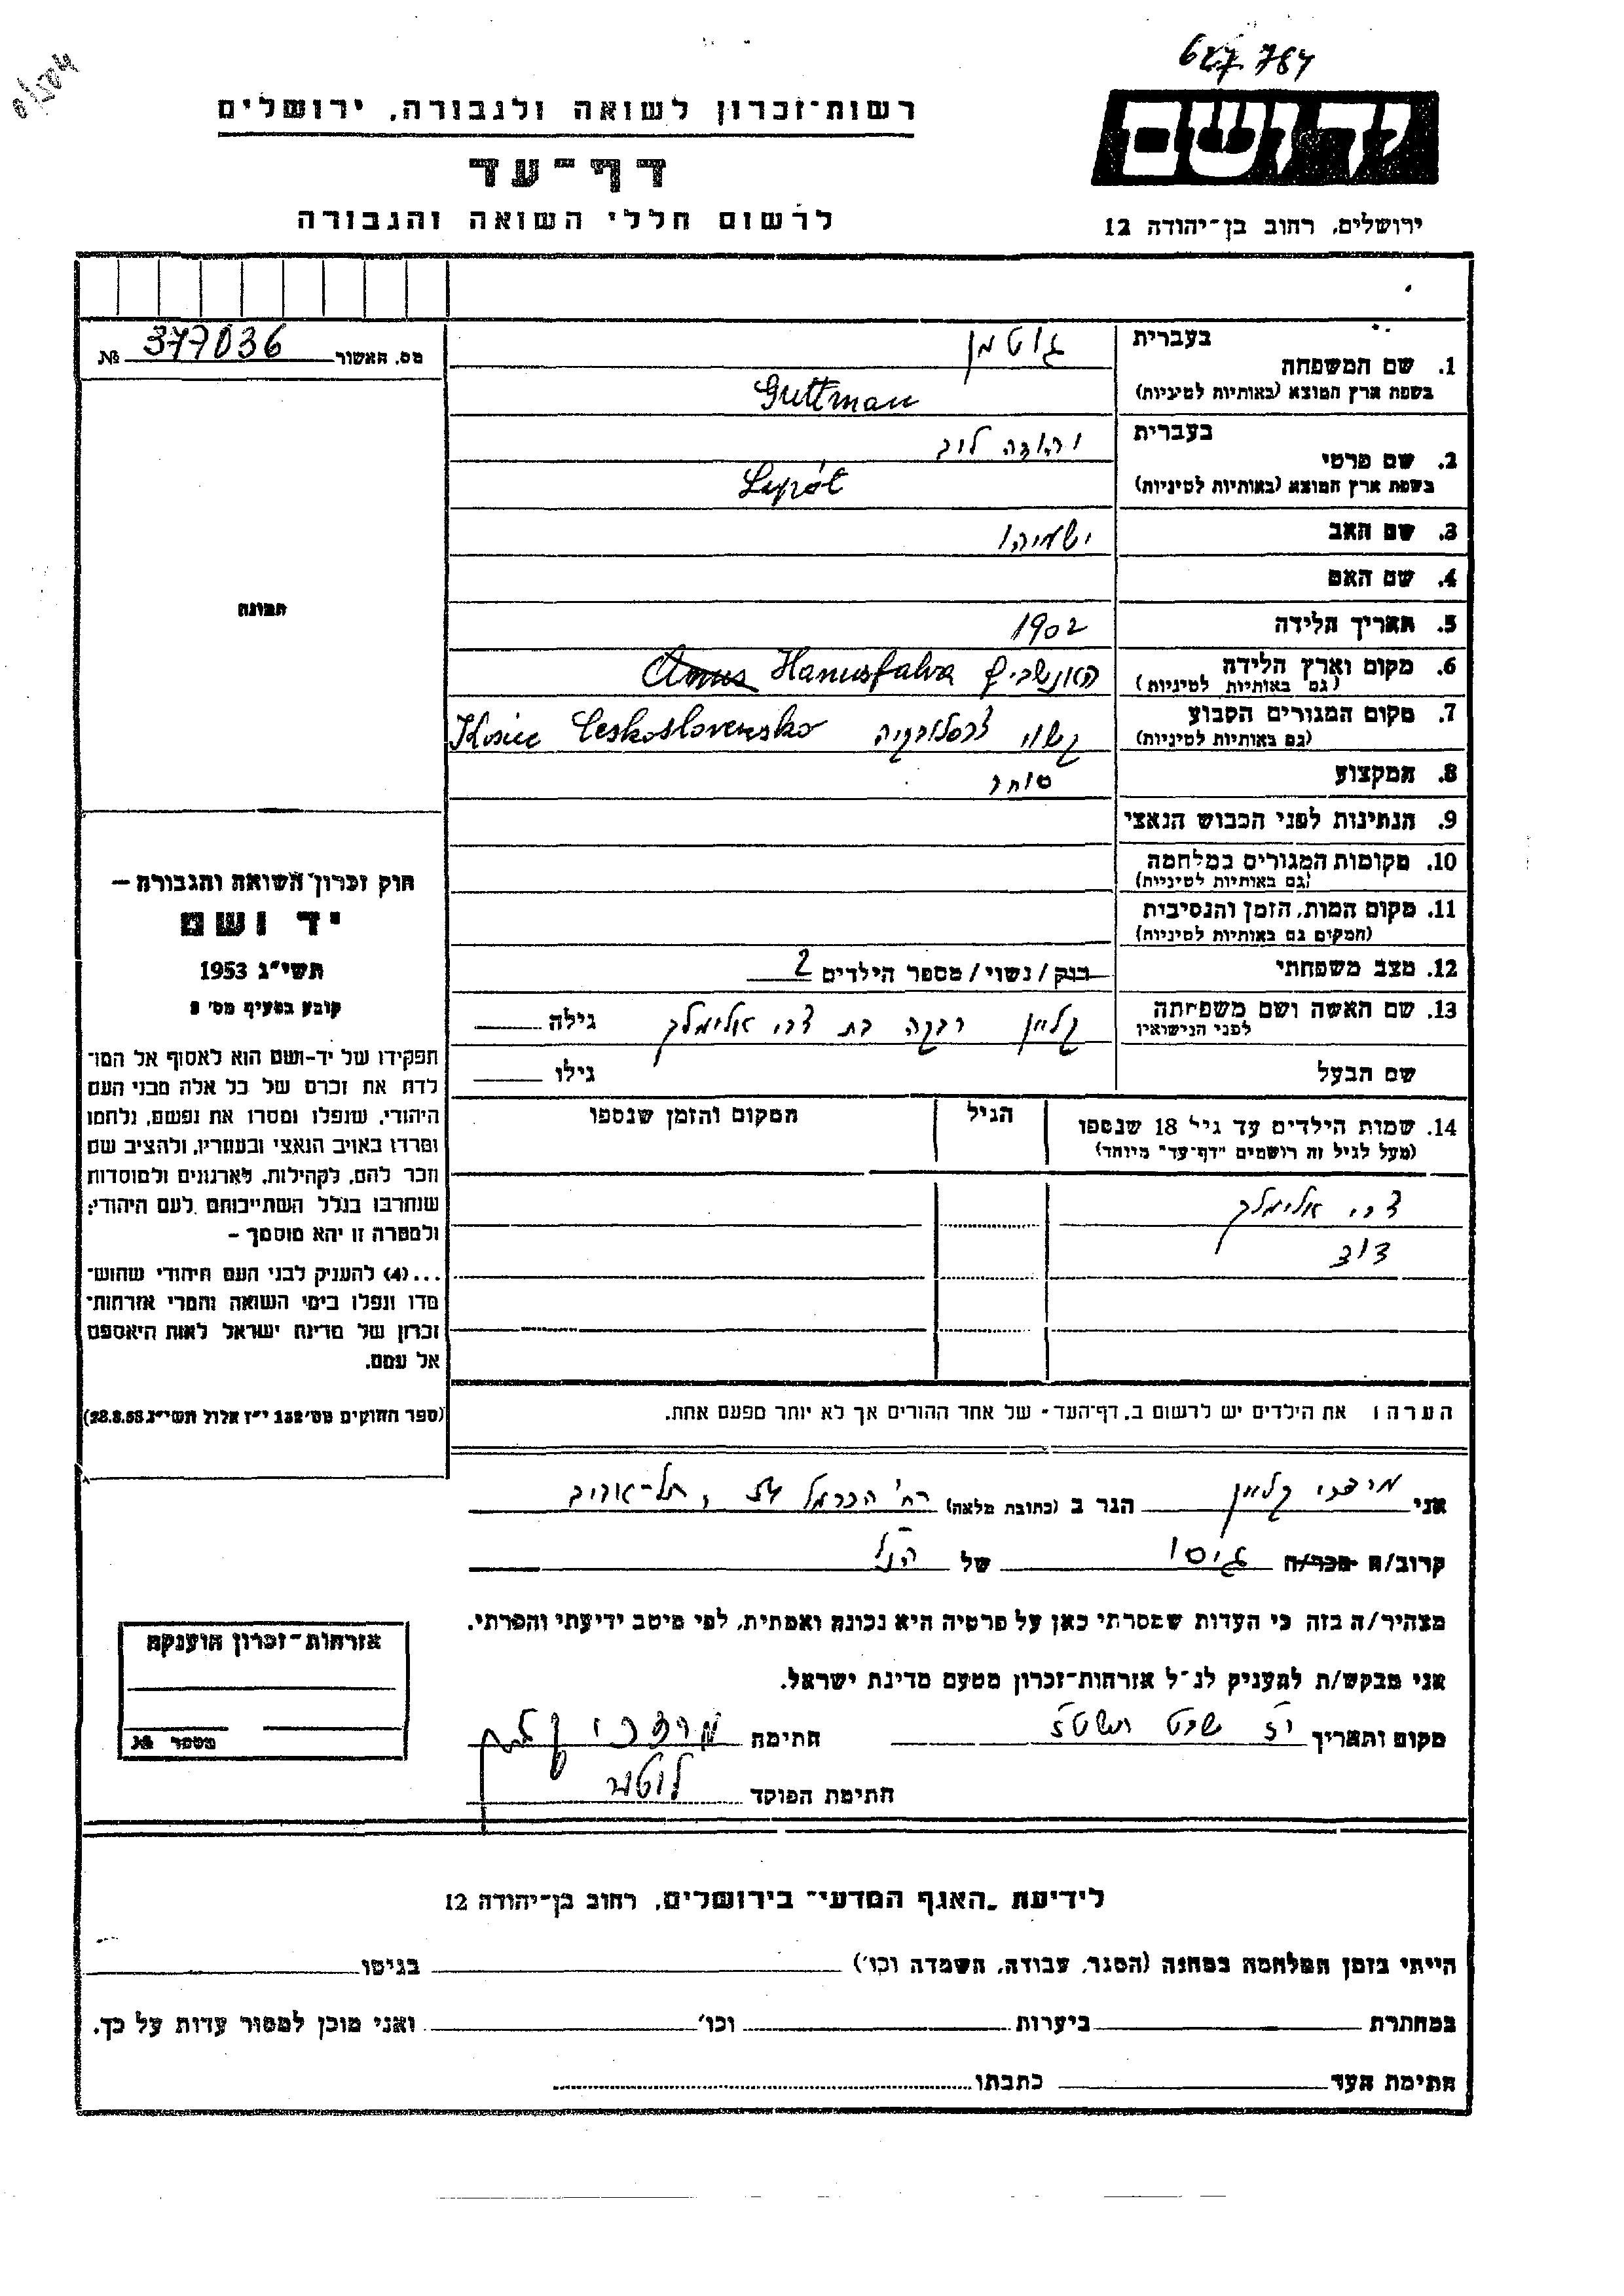 627 784
רשות־זכרון לשואה ולגבורה, ירושלים
יד ושם
דף־עד
לרשום חללי השואה והגבורה
ירושלים, רחוב בן־יהודה 12
מס. האשור 377036 №
בעברית גוטמן
1. שם המשפחה
בשפת ארץ המוצא (באותיות לטיניות) Guttman
בעברית יהודה לוב
2. שם פרטי
בשפת ארץ המוצא (באותיות לטיניות) Lipót
3. שם האב ישעיהו
4. שם האם
5. תאריך הלידה 1902
6. מקום וארץ הלידה Hanusfalva
(גם באותיות לטיניות)
7. מקום המגורים הקבוע קשוי צ'כסלובקיה Ceskoslovensko Kosice
(גם באותיות לטיניות)
8. המקצוע סוחר
9. הנתינות לפני הכבוש הנאצי
10. מקומות המגורים במלחמה
(גם באותיות לטיניות)
11. מקום המות, הזמן והנסיבות
(המקום גם באותיות לטיניות)
12. מצב משפחתי רוק / נשוי / מספר הילדים 2
13. שם האשה ושם משפחתה קליין רבקה בת צבי אלימלך גילה
לפני הנישואין
שם הבעל גילו
14. שמות הילדים עד גיל 18 שנספו הגיל המקום והזמן שנספו
(מעל לגיל זה רושמים "דף־עד" מיוחד)
צבי אלימלך
דוד
הערה: את הילדים יש לרשום ב„דף־העד" של אחד ההורים אך לא יותר מפעם אחת.
תמונה
חוק זכרון השואה והגבורה —
יד ושם
תשי"ג 1953
קובע בסעיף מס' 2
תפקידו של יד־ושם הוא לאסוף אל המו־
לדת את זכרם של כל אלה מבני העם
היהודי, שנפלו ומסרו את נפשם, נלחמו
ומרדו באויב הנאצי ובעוזריו, ולהציב שם
וזכר להם, לקהילות, לארגונים ולמוסדות
שנחרבו בגלל השתייכותם לעם היהודי;
ולמטרה זו יהא מוסמך –
...(4) להעניק לבני העם היהודי שהוש־
מדו ונפלו בימי השואה והמרי אזרחות־
זכרון של מדינת ישראל לאות היאספם
אל עמם.
(ספר החוקים מס' 132 י"ז אלול תשי"ג 28.8.53)
אני מרדכי קליין הגר ב (כתובת מלאה) רח' הכרמל 54, תל-אביב
קרוב/ה מכר/ה גיסו של הנ"ל
מצהיר/ה בזה כי העדות שמסרתי כאן על פרטיה היא נכונה ואמתית, לפי מיטב ידיעתי והכרתי.
אני מבקש/ת להעניק לנ"ל אזרחות־זכרון מטעם מדינת ישראל.
מקום ותאריך י"ז שבט תשט"ז חתימה מרדכי קליין
חתימת הפוקד
אזרחות־זכרון הוענקה
מספר №
לידיעת „האגף המדעי" בירושלים, רחוב בן־יהודה 12
הייתי בזמן המלחמה במחנה (הסגר, עבודה, השמדה וכו') בגיטו
במחתרת ביערות וכו' ואני מוכן למסור עדות על כך.
חתימת העד כתבתו